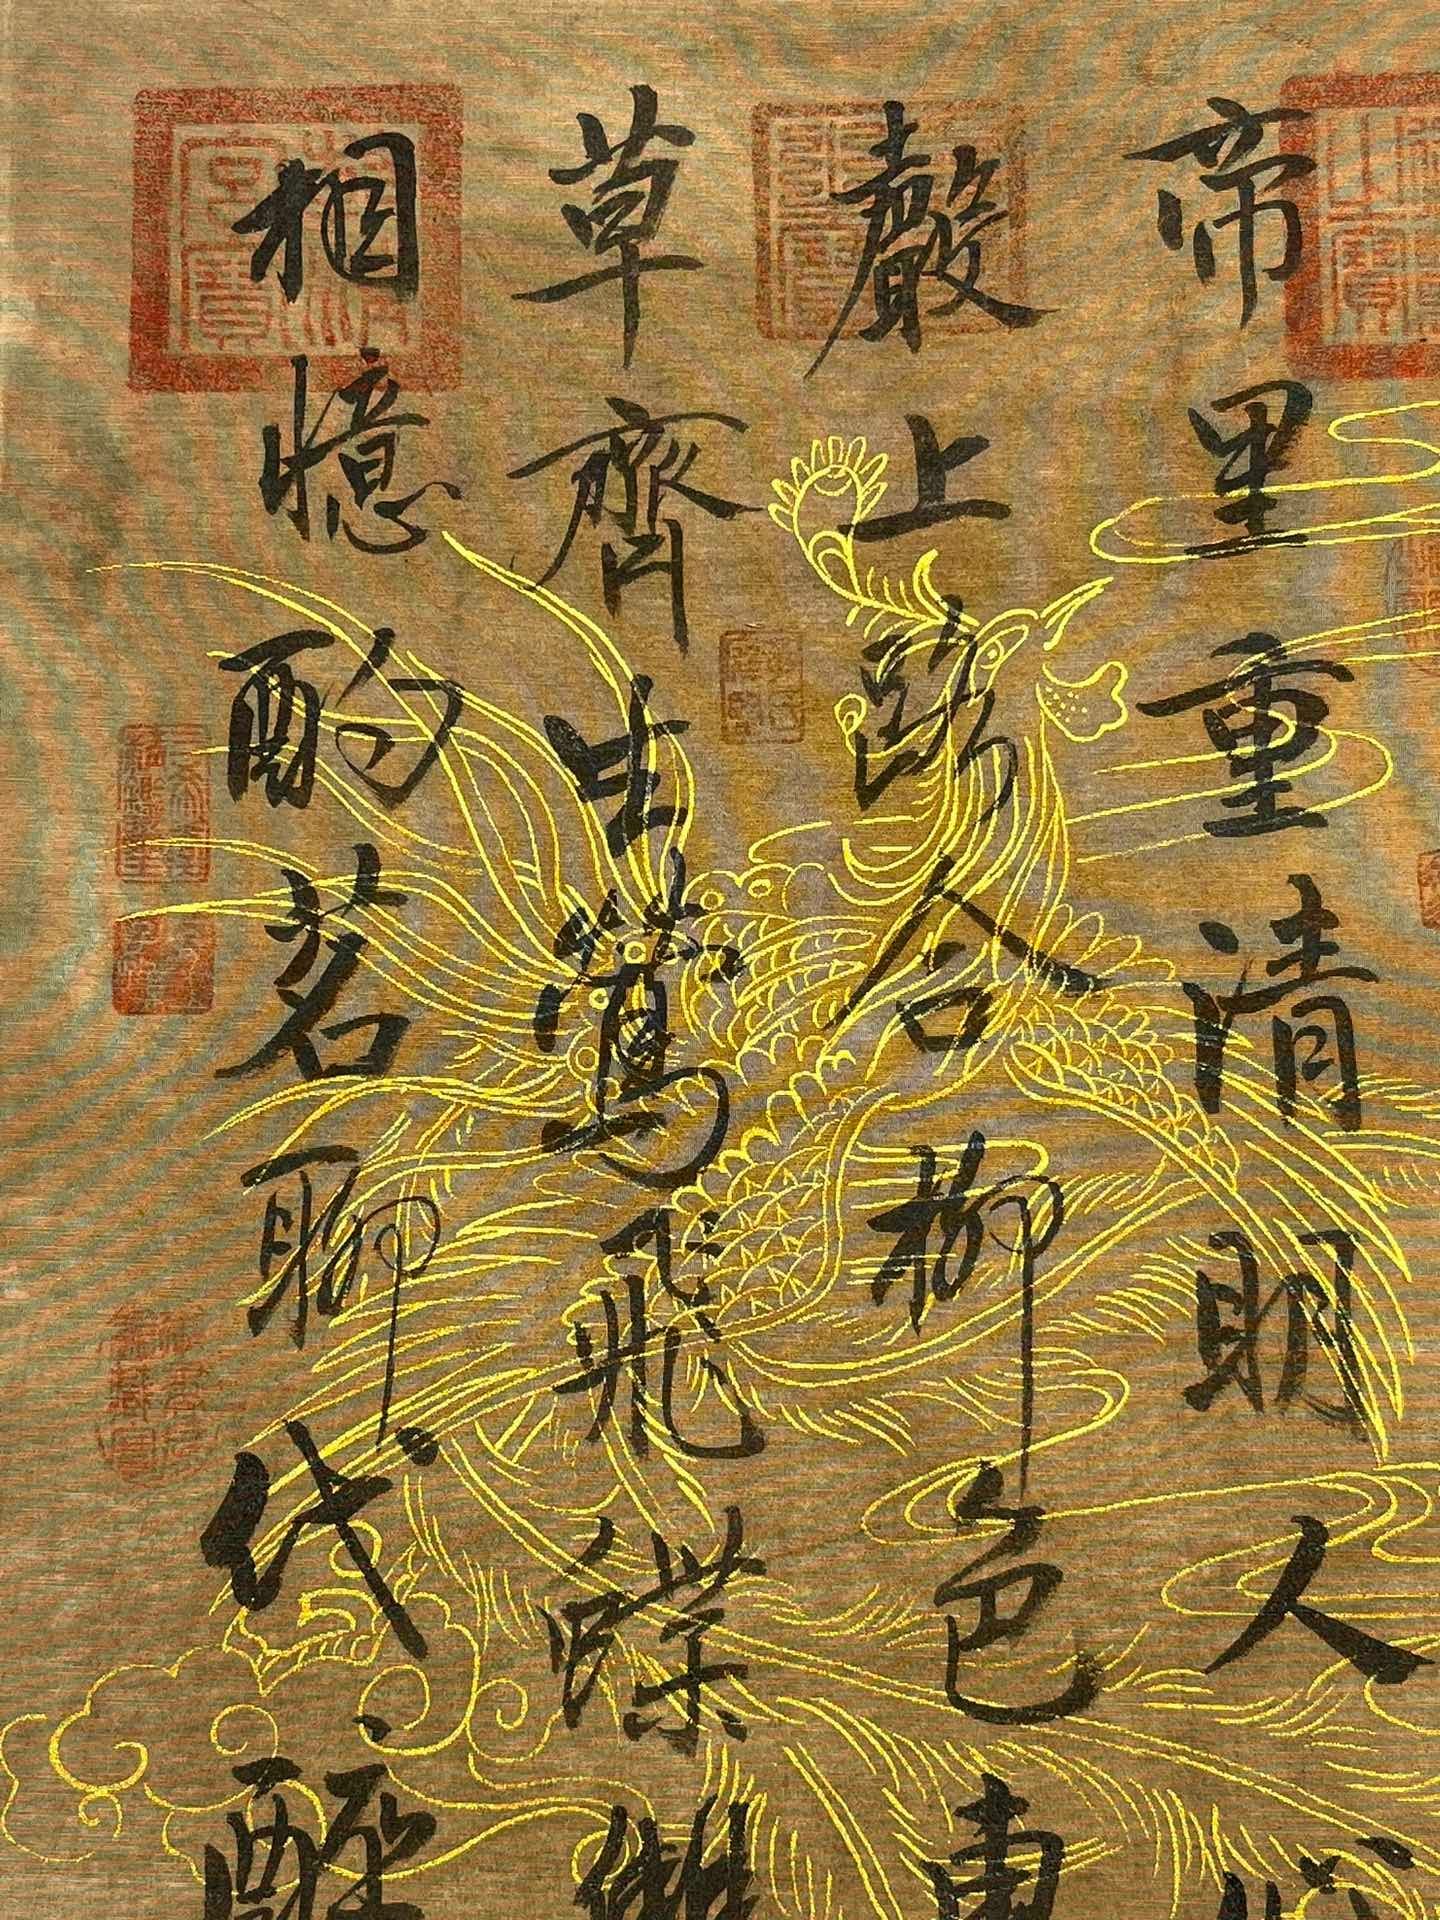 帝里重清明人
聲上路合柳色東
草齊生鶯飛蝶雙
相憶酌茗聊代醉